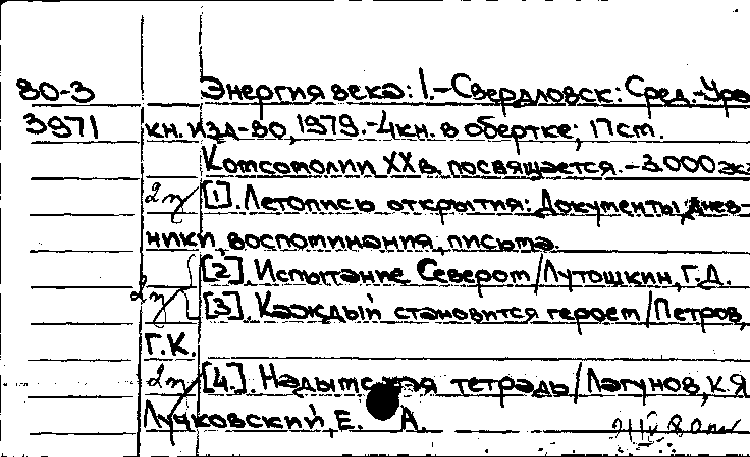 80-3 Энергия века: 1.–Свердловск: Сред.-Ура
3971 кн. изд-во, 1979.–4кн. в обертке; 17 см.
Комсомолии XX в. посвящается. – 3.000 экз
2п [1]. Летопись открытия: Документы, днев-
ники, воспоминания, письма.
[2]. Испытание Севером/Лутошкин, Г.Д.
2п [3]. Каждый становится героем/Петров,
Г.К.
2п [4.]. Надымская тетрадь/Лагунов, К.Я
Лучковский, Е. А.